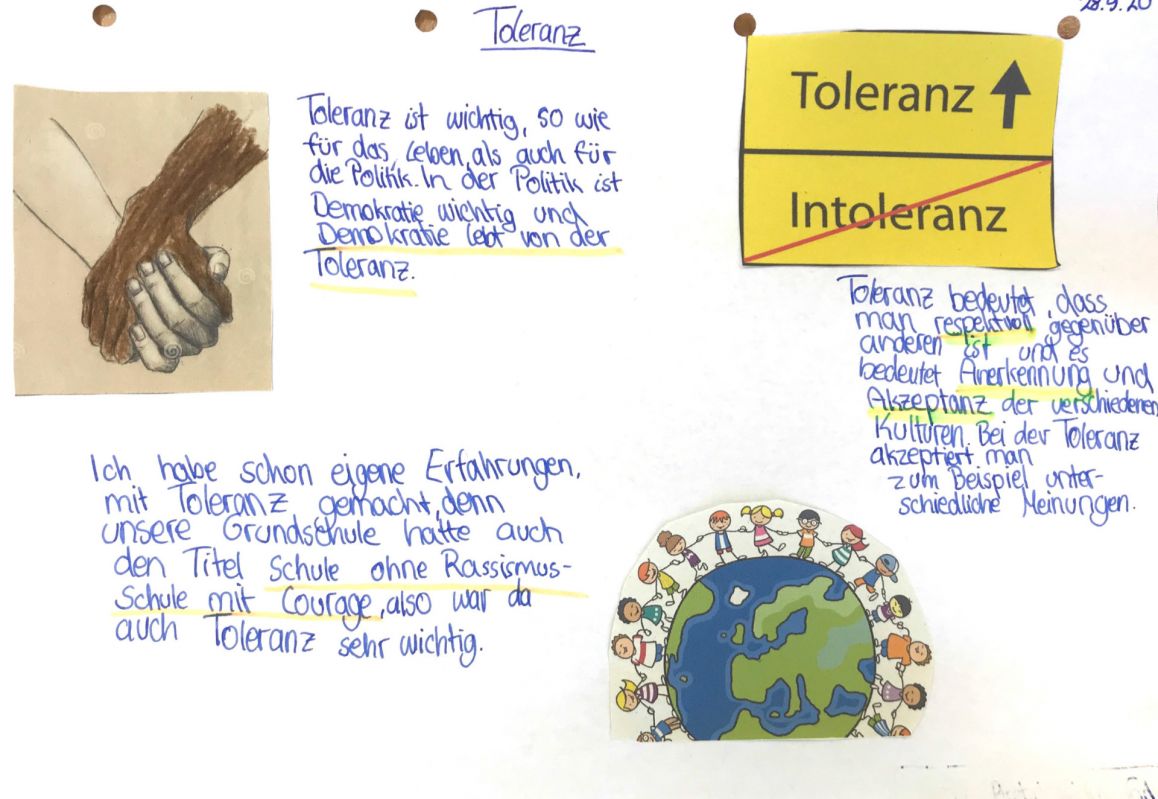 28.9.20
Toleranz
Toleranz ist wichtig, so wie
für das Leben, als auch für
die Politik. In der Politik ist
Demokratie wichtig und
Demokratie lebt von der
Toleranz.
Toleranz
Intoleranz
Toleranz bedeutet, dass
man respektvoll gegenüber
anderen ist und es
bedeutet Anerkennung und
Akzeptanz der verschiedenen
Kulturen. Bei der Toleranz
akzeptiert man
zum Beispiel unter-
schiedliche Meinungen.
Ich habe schon eigene Erfahrungen,
mit Toleranz gemacht, denn
unsere Grundschule hatte auch
den Titel Schule ohne Rassismus-
Schule mit Courage, also war da
auch Toleranz sehr wichtig.